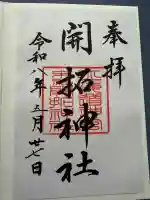 奉拝
開拓神社
令和八年五月廿七日